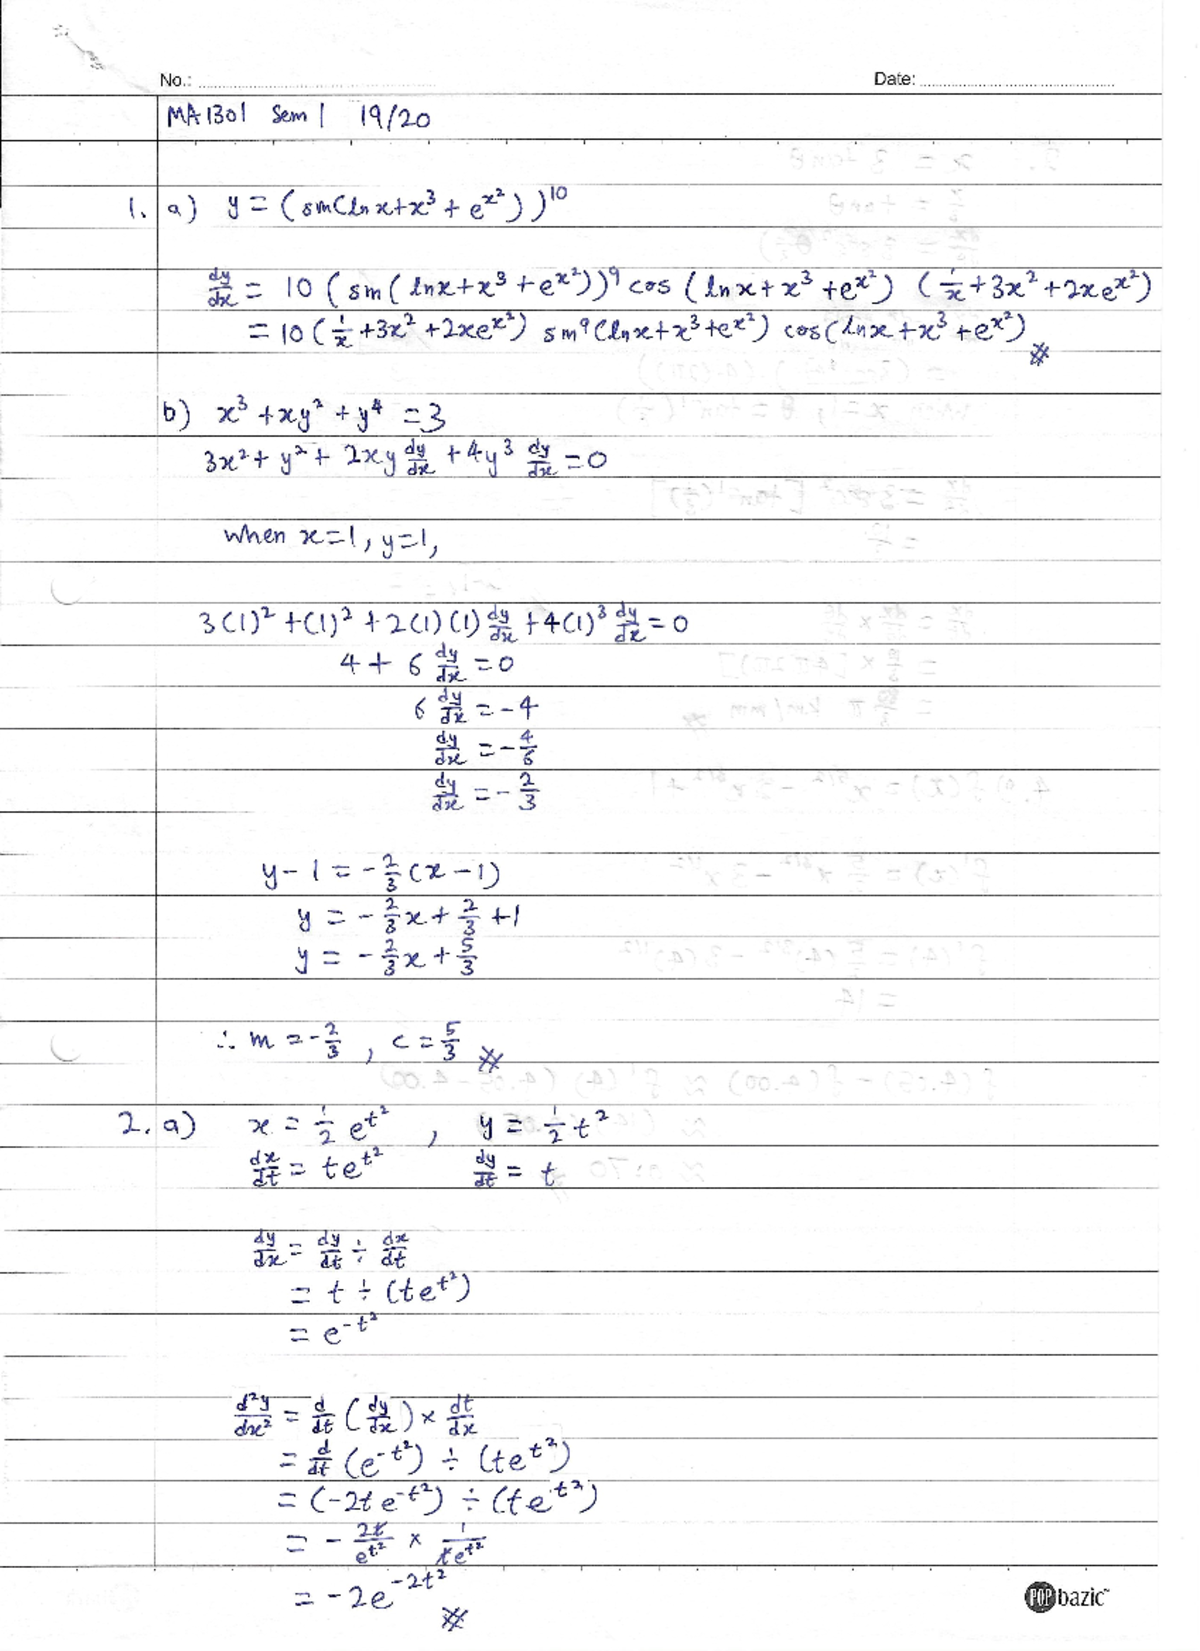 No.: Date:
MA1301 Sem 1 19/20
1. a) y = (sin(ln x + x³ + e^{x²}))^{10}
dy/dx = 10 (sin(ln x + x³ + e^{x²}))⁹ cos (ln x + x³ + e^{x²}) (1/x + 3x² + 2xe^{x²})
= 10 (1/x + 3x² + 2xe^{x²}) sin⁹(ln x + x³ + e^{x²}) cos(ln x + x³ + e^{x²})
b) x³ + xy² + y⁴ = 3
3x² + y² + 2xy dy/dx + 4y³ dy/dx = 0
when x=1, y=1,
3(1)² + (1)² + 2(1)(1) dy/dx + 4(1)³ dy/dx = 0
4 + 6 dy/dx = 0
6 dy/dx = -4
dy/dx = -4/6
dy/dx = -2/3
y - 1 = -2/3 (x - 1)
y = -2/3 x + 2/3 + 1
y = -2/3 x + 5/3
∴ m = -2/3 , c = 5/3
2. a) x = 1/2 e^{t²} , y = 1/2 t²
dx/dt = te^{t²} dy/dt = t
dy/dx = dy/dt ÷ dx/dt
= t ÷ (te^{t²})
= e^{-t²}
d²y/dx² = d/dt (dy/dx) × dt/dx
= d/dt (e^{-t²}) ÷ (te^{t²})
= (-2te^{-t²}) ÷ (te^{t²})
= - 2t/e^{t²} × 1/te^{t²}
= -2e^{-2t²}
POP bazic™